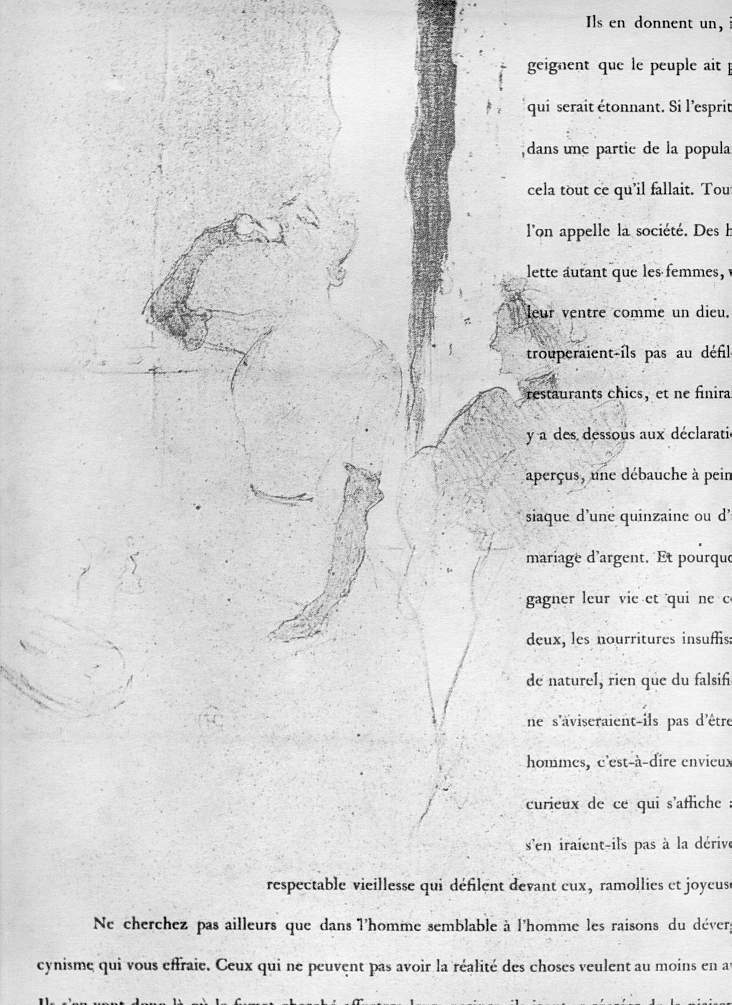 Ils en donnent un,
geignent que le peuple ait
qui serait étonnant. Si l'esprit
dans une partie de la popula
cela tout ce qu'il fallait. Tou
l'on appelle la société. Des
lette autant que les femmes,
leur ventre comme un dieu.
trouperaient-ils pas au défil
restaurants chics, et ne finira
y a des dessous aux déclarati
aperçus, une débauche à pein
siaque d'une quinzaine ou d'
mariage d'argent. Et pourquo
gagner leur vie et qui ne
deux, les nourritures insuffis
de naturel, rien que du falsifi
ne s'aviseraient-ils pas d'être
hommes, c'est-à-dire envieux
curieux de ce qui s'affiche
s'en iraient-ils pas à la dériv
respectable vieillesse qui défilent devant eux, ramollies et joyeus
Ne cherchez pas ailleurs que dans l'homme semblable à l'homme les raisons du déver
cynisme qui vous effraie. Ceux qui ne peuvent pas avoir la réalité des choses veulent au moins en